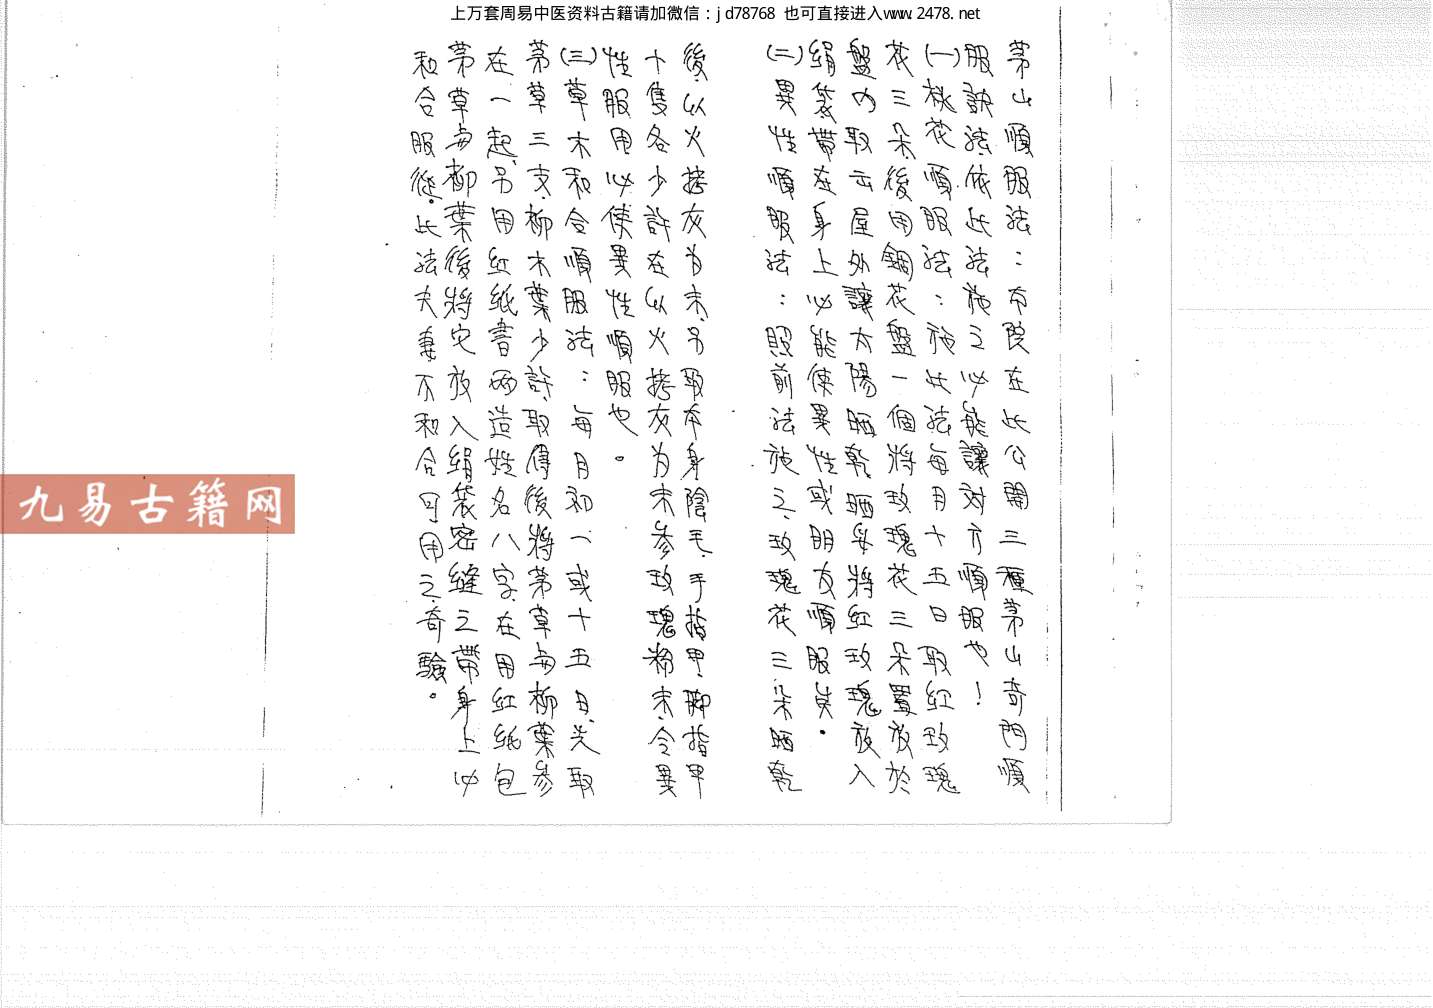 上万套周易中医资料古籍请加微信：jd78768 也可直接进入www.2478.net
茅山順服法：本院在此公開三種茅山奇門順
服訣法依此法施之必能讓对方順服也！
(一)桃花順服法：施此法每月十五日取紅玫瑰
花三朵後用銅花盤一個將玫瑰花三朵置放於
盤內取云屋外讓太陽晒乾晒乾將紅玫瑰放入
絹袋帶在身上必能使異性或朋友順服矣。
(二)異性順服法：照前法施之、玫瑰花三朵晒乾
後、以火拷灰为末、另取本身陰毛、手指甲、脚指甲
十隻各少許在以火拷灰为末参玫瑰粉末、令異
性服用必使異性順服也。
(三)草木和合順服法：每月初一或十五日、先取
茅草三支、柳木葉少許、取得後將茅草与柳葉参
在一起、另用紅紙書两造姓名八字、在用紅紙包
茅草与柳葉後將它放入絹袋密縫之帶身上必
和合服從。此法夫妻不和合可用之、奇驗。
九易古籍网